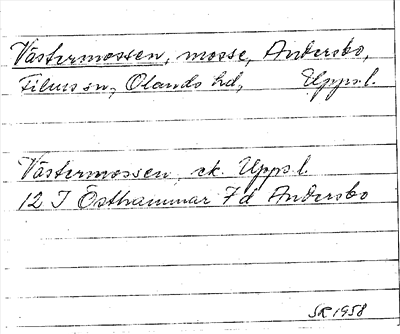 Västermossen, mosse, Andersbo,
Films sn, Olands hd, Upps.l.
Västermossen, ek. Upps.l.
12 I Östhammar 7d Andersbo
SR 1958